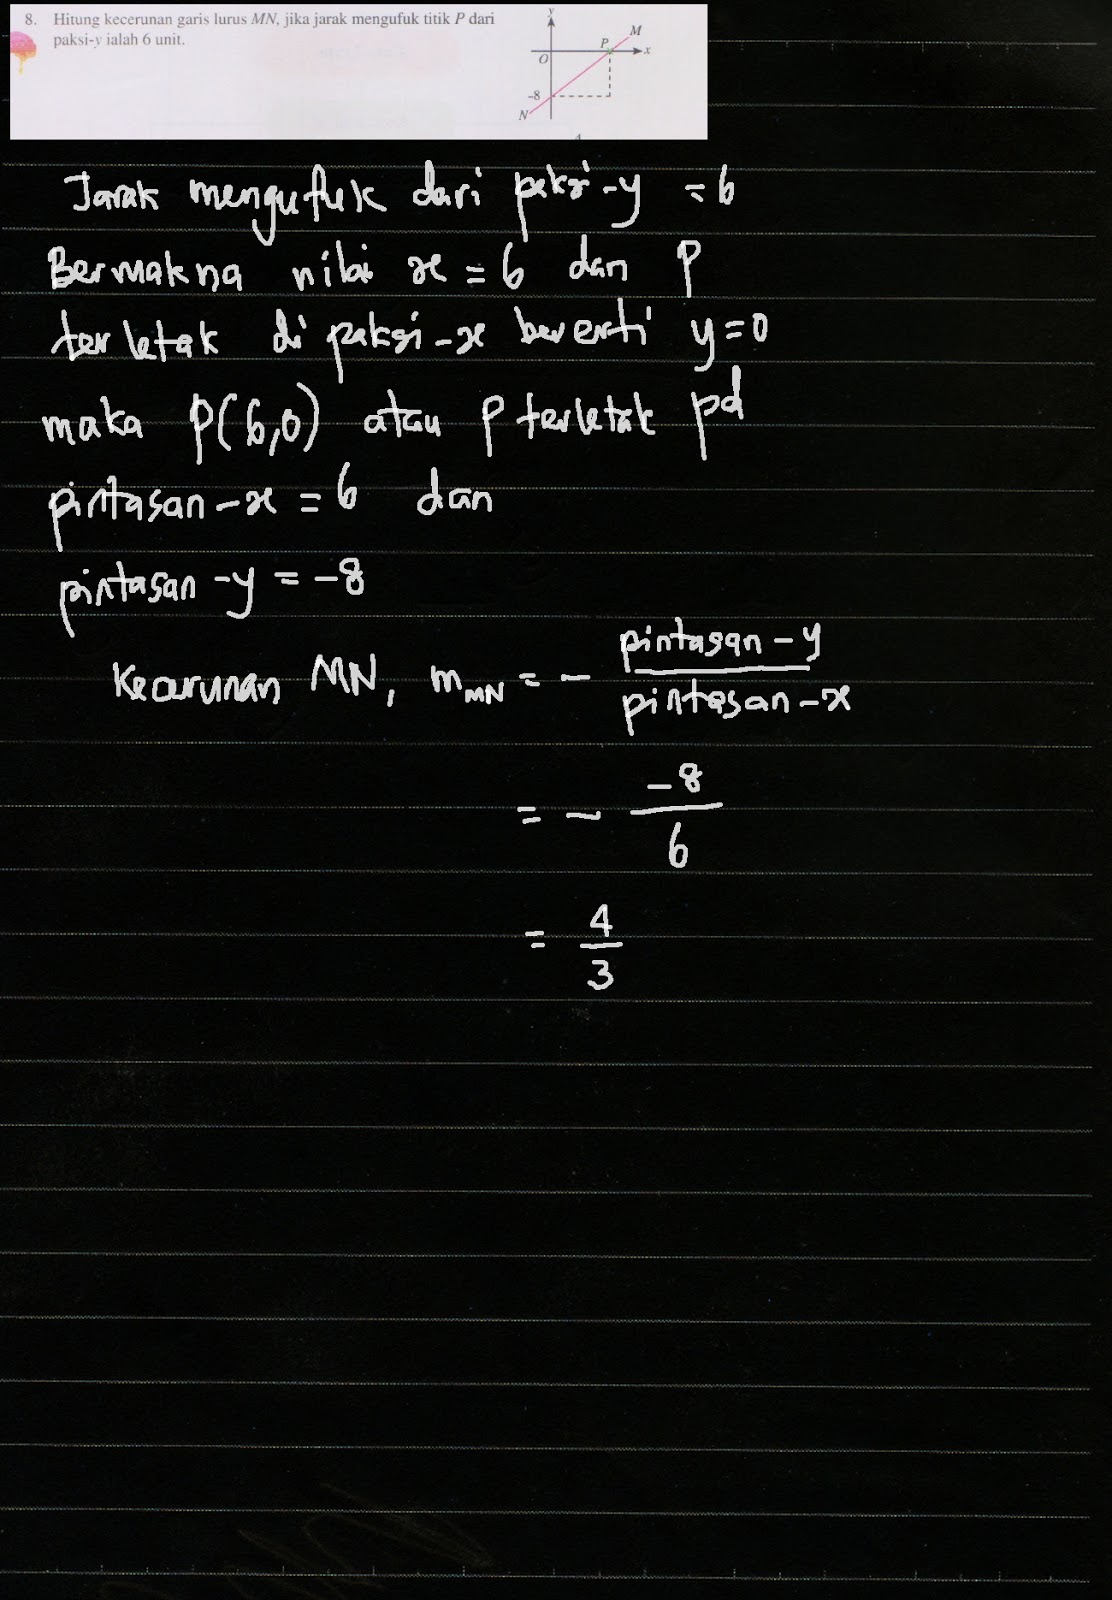 8. Hitung kecerunan garis lurus MN, jika jarak mengufuk titik P dari
paksi-y ialah 6 unit.
y
M
P
x
O
-8
N
Jarak mengufuk dari paksi-y = 6
Bermakna nilai x = 6 dan P
terletak di paksi-x bererti y=0
maka P(6,0) atau P terletak pd
pintasan-x = 6 dan
pintasan-y = -8
Kecerunan MN, m_MN = - pintasan-y / pintasan-x
= - -8/6
= 4/3